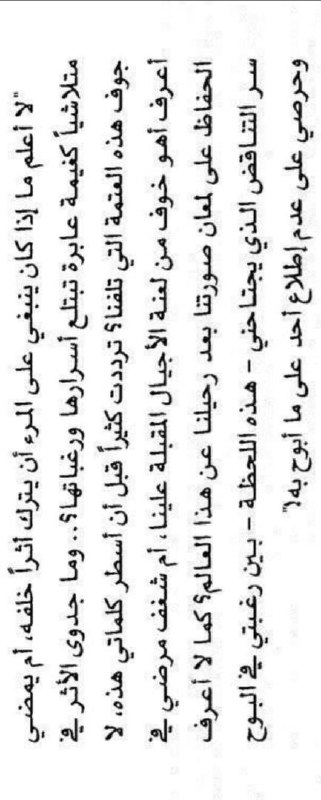 "لا أعلم ما إذا كان ينبغي على المرء أن يترك أثراً خلفه، أم يمضي
متلاشياً كغيمة عابرة تبتلع أسرارها ورغباتها؟.. وما جدوى الأثر في
جوف هذه العتمة التي تلفنا؟ ترددت كثيراً قبل أن أسطر كلماتي هذه، لا
أعرف أهو خوف من لعنة الأجيال المقبلة علينا، أم شغف مرضي في
الحفاظ على لمعان صورتنا بعد رحيلنا عن هذا العالم؟ كما لا أعرف
سر التناقض الذي يجتاحني - هذه اللحظة - بين رغبتي في البوح
وحرصي على عدم إطلاع أحد على ما أبوح به!"